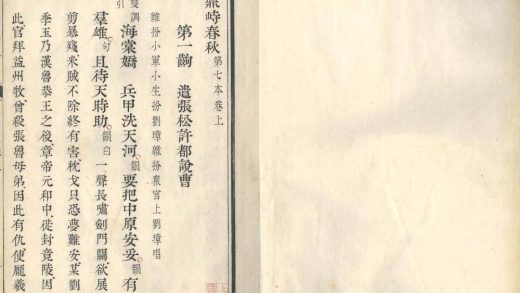 鼎峙春秋 第七本卷上
第一齣 遣張松許都說曹
雜扮小軍小生扮劉璋雜扮衆官上劉璋唱
雙調引 海棠嬌 兵甲洗天河韻要把中原安妥韻有
羣雄句且待天時助韻白一聲長嘯劍門關欲展
剪暴殘米賊不除終有害枕戈只恐夢難安某劉
季玉乃漢魯恭王之後章帝元和中徙封竟陵因
此官拜益州牧曾殺張魯母弟因此有仇使龐羲